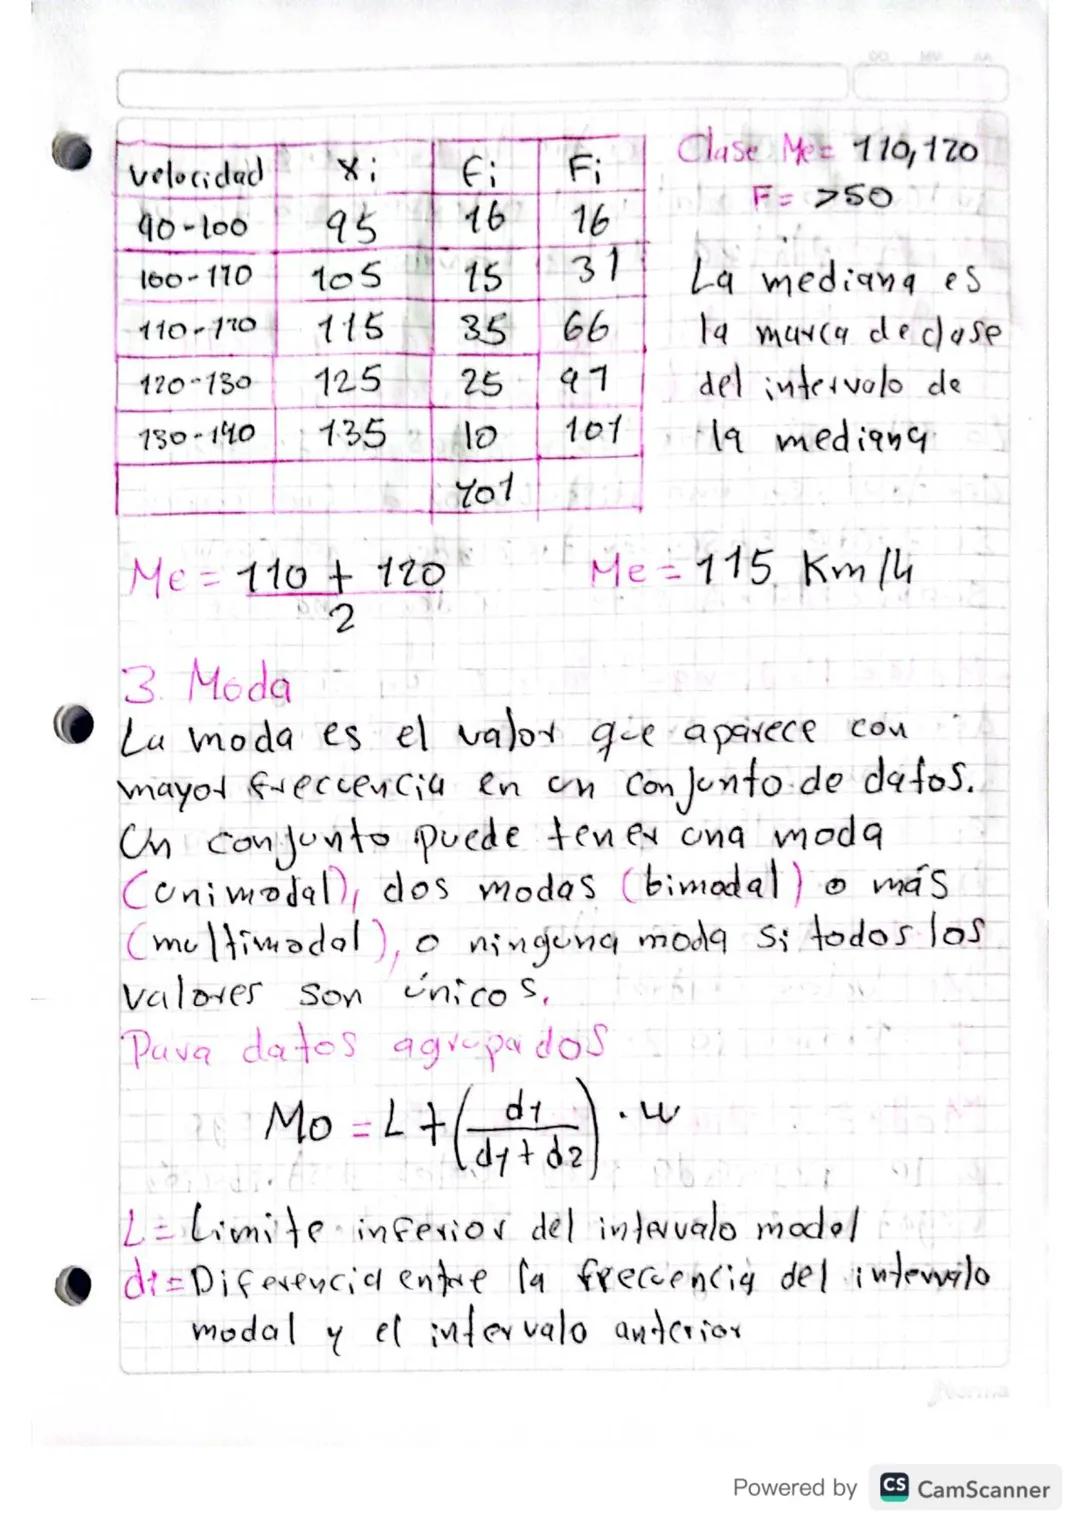 velocidad xi fi Fi
90-100 95 16 16
100-110 105 15 31
110-120 115 35 66
120-130 125 25 91
130-140 135 10 101
101
Clase Me= 110,120
F= >50
La mediana es
la marca de clase
del intervalo de
la mediana
Me = 110 + 120
2
Me = 115 Km/h
3. Moda
La moda es el valor que aparece con
mayor frecuencia en un conjunto de datos.
Un conjunto puede tener una moda
(unimodal), dos modas (bimodal) o más
(multimodal), o ninguna moda si todos los
valores son únicos.
Para datos agrupados
Mo = L + (d1 / d1 + d2) · w
L = Limite inferior del intervalo modal
d1 = Diferencia entre la frecuencia del intervalo
modal y el intervalo anterior
Norma
Powered by CS CamScanner